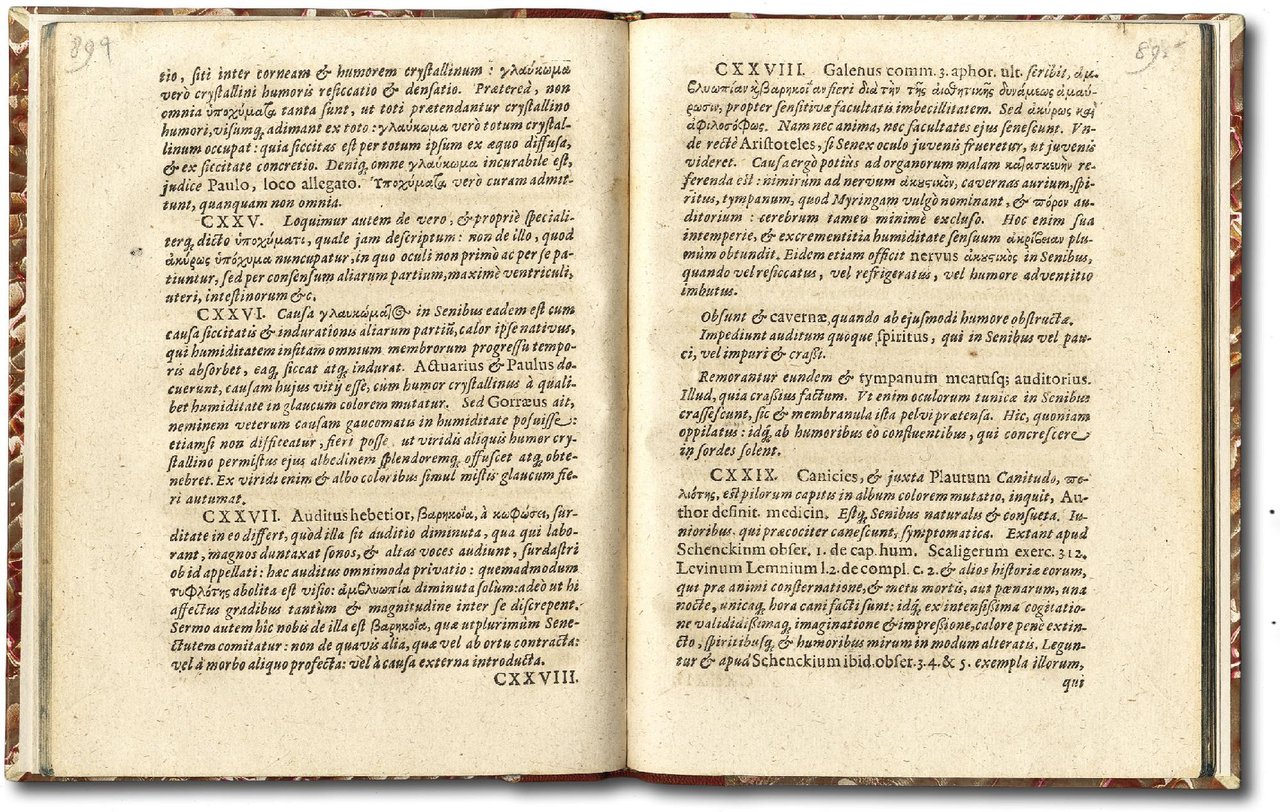 894
tio, siti inter corneam & humorem crystallinum : γλαύκωμα
verò crystallini humoris resiccatio & densatio. Prætereà, non
omnia ὑποχύματα tanta sunt, ut toti prætendantur crystallino
humori, visumq; adimant ex toto : γλαύκωμα verò totum crystal-
linum occupat : quia siccitas est per totum ipsum ex æquo diffusa,
& ex siccitate concretio. Deniq; omne γλαύκωμα incurabile est,
judice Paulo, loco allegato. Ὑποχύματα verò curam admit-
tunt, quanquam non omnia.
CXXV. Loquimur autem de vero, & propriè speciali-
terq; dicto ὑποχύματι, quale jam descriptum : non de illo, quod
ἀκύρως ὑπόχυμα nuncupatur, in quo oculi non primò ac per se pa-
tiuntur, sed per consensum aliarum partium, maximè ventriculi,
uteri, intestinorum &c.
CXXVI. Causa γλαυκώματος in Senibus eadem est cum
causa siccitatis & indurationis aliarum partiũ, calor ipse nativus,
qui humiditatem insitam omnium membrorum progressu tempo-
ris absorbet, eaq; siccat atq; indurat. Actuarius & Paulus do-
cuerunt, causam hujus vitij esse, cùm humor crystallinus à quali-
bet humiditate in glaucum colorem mutatur. Sed Gorræus ait,
neminem veterum causam gaucomatis in humiditate posuisse :
etiamsi non diffiteatur, fieri posse, ut viridis aliquis humor cry-
stallino permistus ejus albedinem splendoremq; offuscet atq; obte-
nebret. Ex viridi enim & albo coloribus simul mistis glaucum fie-
ri autumat.
CXXVII. Auditus hebetior, βαρηκοΐα, à κωφώσει, sur-
ditate in eo differt, quòd illa sit auditio diminuta, qua qui labo-
rant, magnos duntaxat sonos, & altas voces audiunt, surdastri
ob id appellati : hæc auditus omnimoda privatio : quemadmodum
τυφλότης abolita est visio : ἀμβλυωπία diminuta solum : adeò ut hi
affectus gradibus tantùm & magnitudine inter se discrepent.
Sermo autem hic nobis de illa est βαρηκοΐα, quæ utplurimùm Sene-
ctutem comitatur : non de quavis alia, quæ vel ab ortu contracta :
vel à morbo aliquo profecta : vel à causa externa introducta.
CXXVIII.
895
CXXVIII. Galenus comm. 3. aphor. ult. scribit, ἀμ-
βλυωπίαν κ βαρηκοΐαν fieri διὰ τὴν τῆς αἰσθητικῆς δυνάμεως ἀμαύ-
ρωσιν, propter sensitivæ facultatis imbecillitatem. Sed ἀκύρως καὶ
ἀφιλοσόφως. Nam nec anima, nec facultates ejus senescunt. Vn-
de rectè Aristoteles, si Senex oculo juvenis frueretur, ut juvenis
videret. Causa ergò potiùs ad organorum malam κατασκευὴν re-
ferenda est : nimirùm ad nervum ἀκυστικὸν, cavernas aurium, spi-
ritus, tympanum, quod Myringam vulgò nominant, & πόρον au-
ditorium : cerebrum tamen minimè excluso. Hoc enim sua
intemperie, & excrementitia humiditate sensuum ἀκρίβειαν plu-
rimùm obtundit. Eidem etiam officit nervus ἀκυστικὸς in Senibus,
quando vel resiccatus, vel refrigeratus, vel humore adventitio
imbutus.
Obsunt & cavernæ, quando ab ejusmodi humore obstructæ.
Impediunt auditum quoque spiritus, qui in Senibus vel pau-
ci, vel impuri & crassi.
Remorantur eundem & tympanum meatusq; auditorius.
Illud, quia crassius factum. Vt enim oculorum tunicæ in Senibus
crassescunt, sic & membranula ista pelvi prætensa. Hic, quoniam
oppilatus : idq; ab humoribus eò confluentibus, qui concrescere
in sordes solent.
CXXIX. Canicies, & juxta Plautum Canitudo, πο-
λιότης, est pilorum capitis in album colorem mutatio, inquit, Au-
thor definit. medicin. Estq; Senibus naturalis & consueta. Iu-
nioribus, qui præcociter canescunt, symptomatica. Extant apud
Schenckium obser. 1. de cap. hum. Scaligerum exerc. 312.
Levinum Lemnium l. 2. de compl. c. 2. & alios historiæ eorum,
qui præ animi consternatione, & metu mortis, aut pœnarum, una
nocte, unicaq; hora cani facti sunt : idq; ex intensissima cogitatio-
ne validissimaq; imaginatione & impressione, calore penè extin-
cto, spiritibusq; & humoribus mirum in modum alteratis. Legun-
tur & apud Schenckium ibid. obser. 3. 4. & 5. exempla illorum,
qui